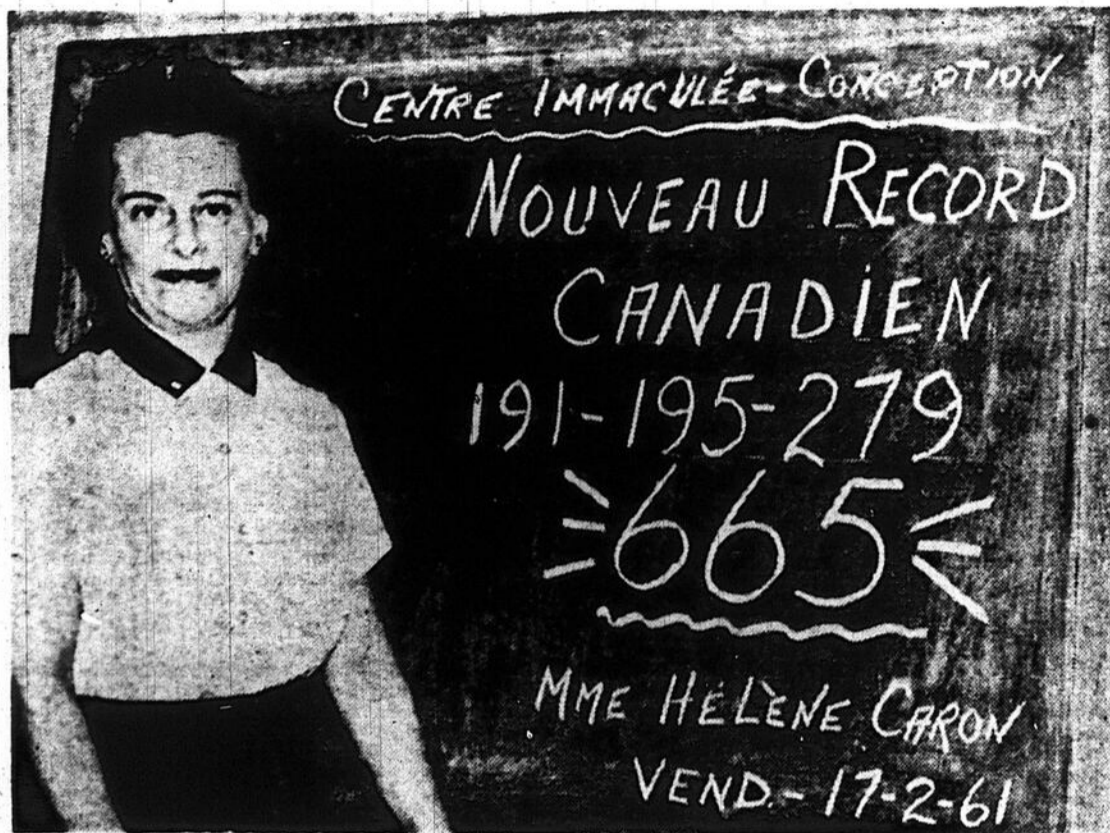 CENTRE IMMACULÉE-CONCEPTION
NOUVEAU RECORD
CANADIEN
191-195-279
665
MME HÉLÈNE CARON
VEND.-17-2-61